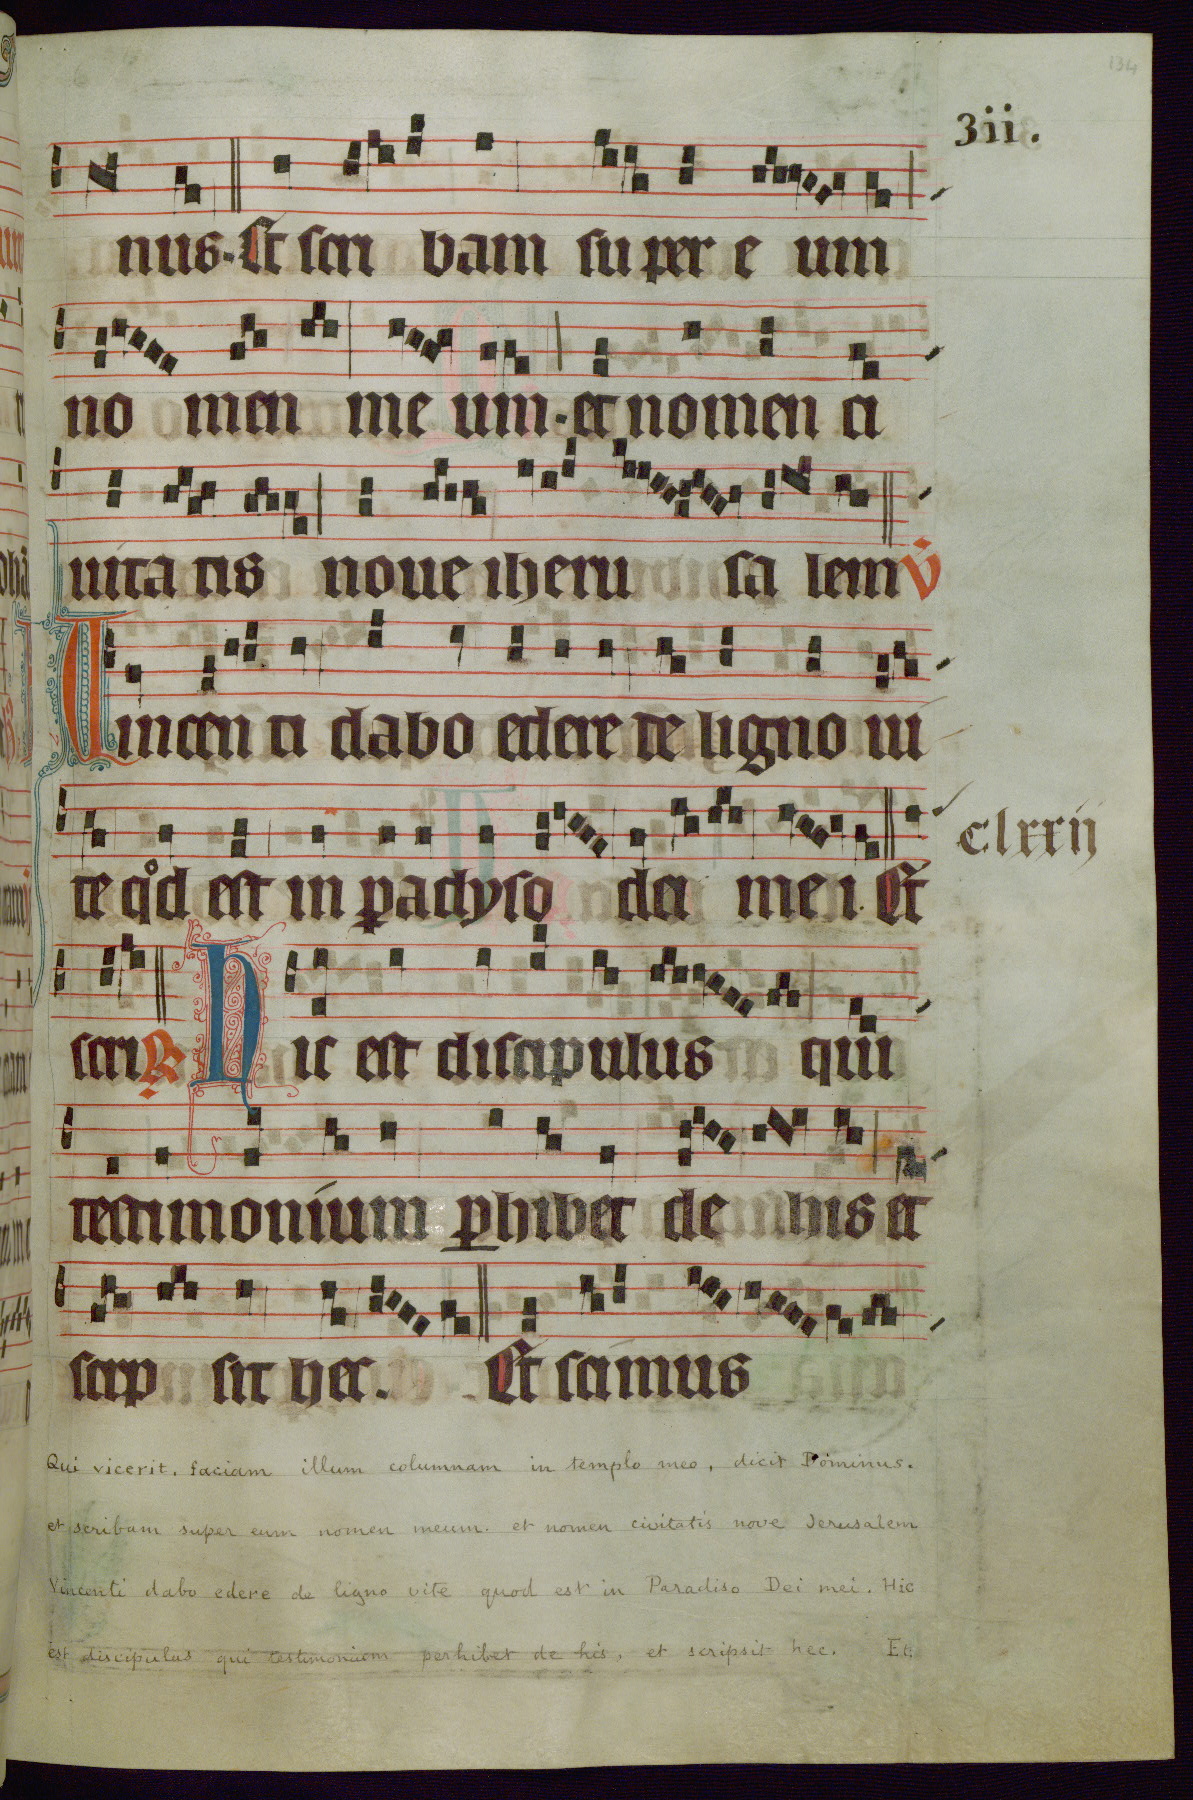 134
3ii.
nus. Et scri bam su per e um
no men me um. et nomen ci
uita tis noue iheru sa lem V̄
Uincen ti dabo edere de ligno ui
te qͦd est in padyso dei me i. Et
scri R Hic est discipulus qui
clxxij
testimonium phibet de his et
scrip sit hec. Et scimus
Qui vicerit, faciam illum columnam in templo meo, dicit Dominus.
et scribam super eum nomen meum. et nomen civitatis nove Jerusalem
Vincenti dabo edere de ligno vite quod est in Paradiso Dei mei. Hic
est discipulus qui testimonium perhibet de his, et scripsit hec. Et